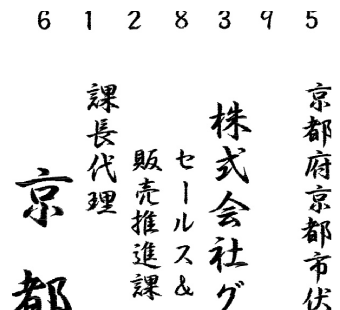 6128395
京都府京都市伏
株式会社グ
セールス&
販売推進課
課長代理
京都